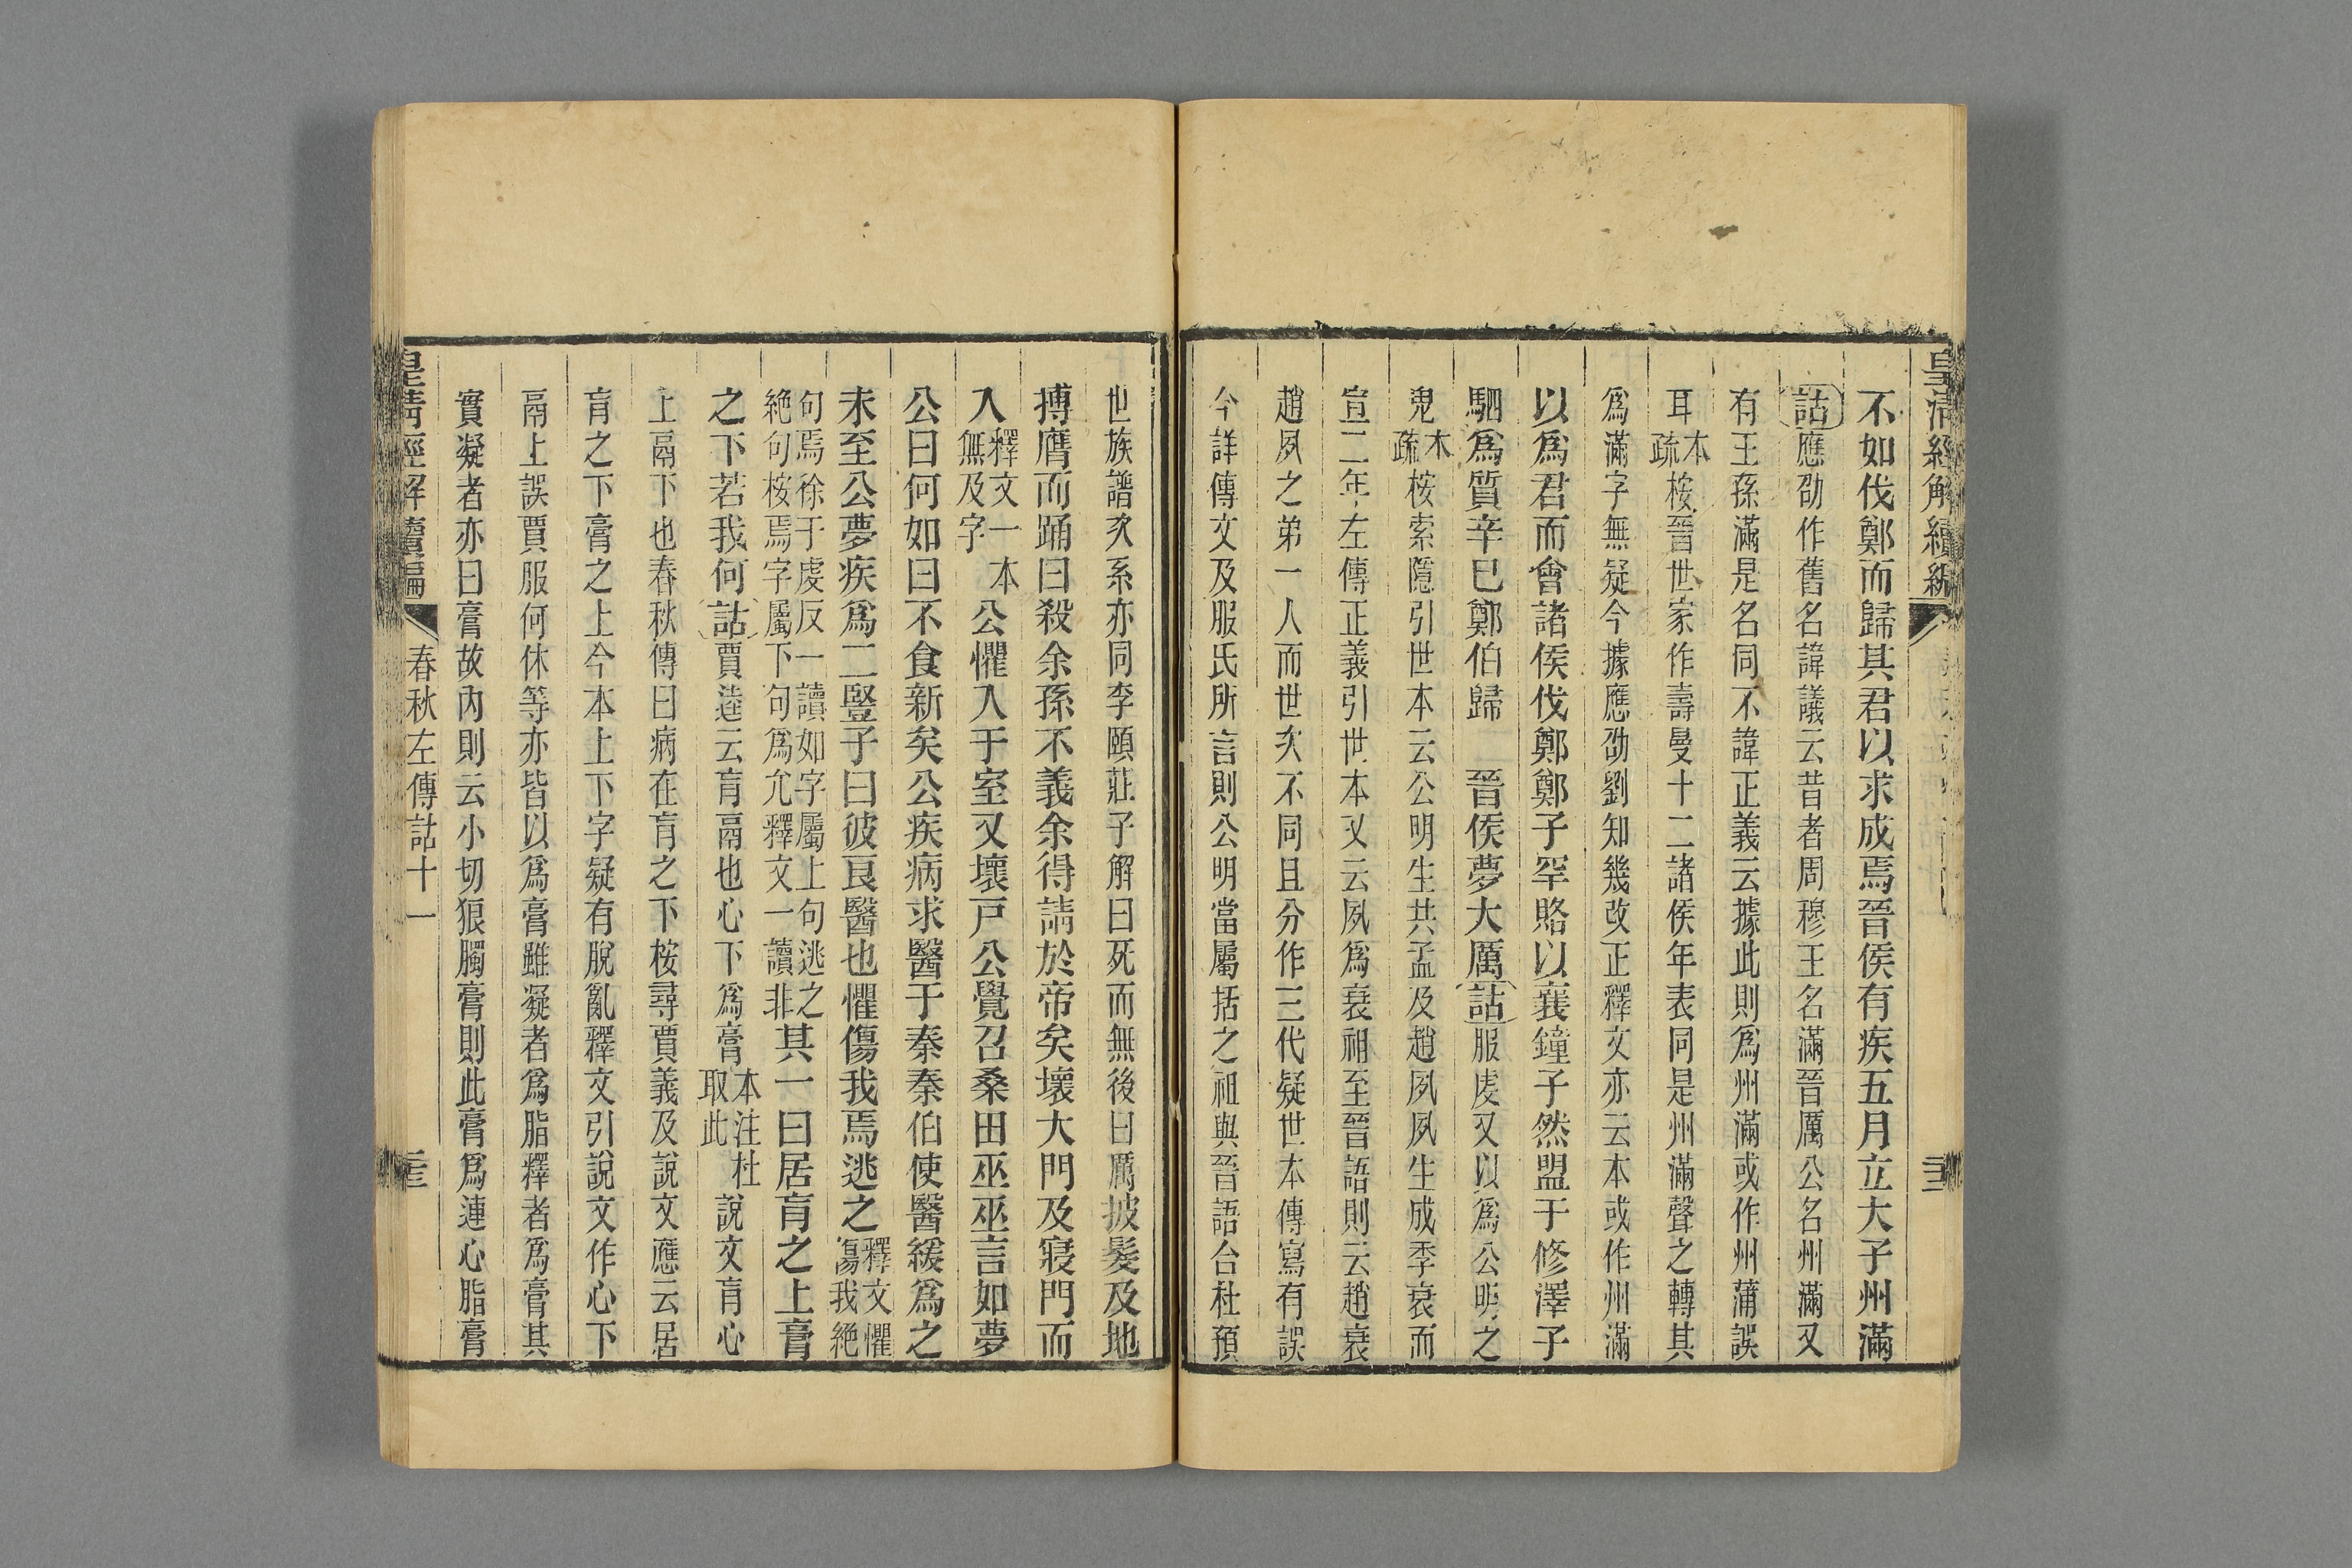 皇清經解續編
不如伐鄭而歸其君以求成焉晉侯有疾五月立大子州滿
詁應劭作舊名諱議云昔者周穆王名滿晉厲公名州滿又
有王孫滿是名同不諱正義云據此則爲州滿或作州蒲誤
耳本疏桉晉世家作壽曼十二諸侯年表同是州滿聲之轉其
爲滿字無疑今據應劭劉知幾改正釋文亦云本或作州滿
以爲君而會諸侯伐鄭鄭子罕賂以襄鐘子然盟于修澤子
駟爲質辛巳鄭伯歸 晉侯夢大厲詁服虔又以爲公明之
鬼本疏桉索隱引世本云公明生共孟及趙夙夙生成季衰而
宣二年左傳正義引世本又云夙爲衰祖至晉語則云趙衰
趙夙之弟一人而世次不同且分作三代疑世本傳寫有誤
今詳傳文及服氏所言則公明當屬括之祖與晉語合杜預
世族譜次系亦同李頤莊子解曰死而無後曰厲披髮及地
搏膺而踊曰殺余孫不義余得請於帝矣壞大門及寢門而
入釋文一本無及字公懼入于室又壞戸公覺召桑田巫巫言如夢
公曰何如曰不食新矣公疾病求醫于秦秦伯使醫緩爲之
未至公夢疾爲二豎子曰彼良醫也懼傷我焉逃之釋文懼傷我絶
句焉徐于虔反一讀如字屬上句逃之絶句桉焉字屬下句爲允釋文一讀非其一曰居肓之上膏
之下若我何詁賈逵云肓鬲也心下爲膏本注杜取此說文肓心
上鬲下也春秋傳曰病在肓之下桉尋賈義及說文應云居
肓之下膏之上今本上下字疑有脫亂釋文引說文作心下
鬲上誤賈服何休等亦皆以爲膏雖凝者爲脂釋者爲膏其
實凝者亦曰膏故內則云小切狼臅膏則此膏爲連心脂膏
皇清經解續編 春秋左傳詁十一